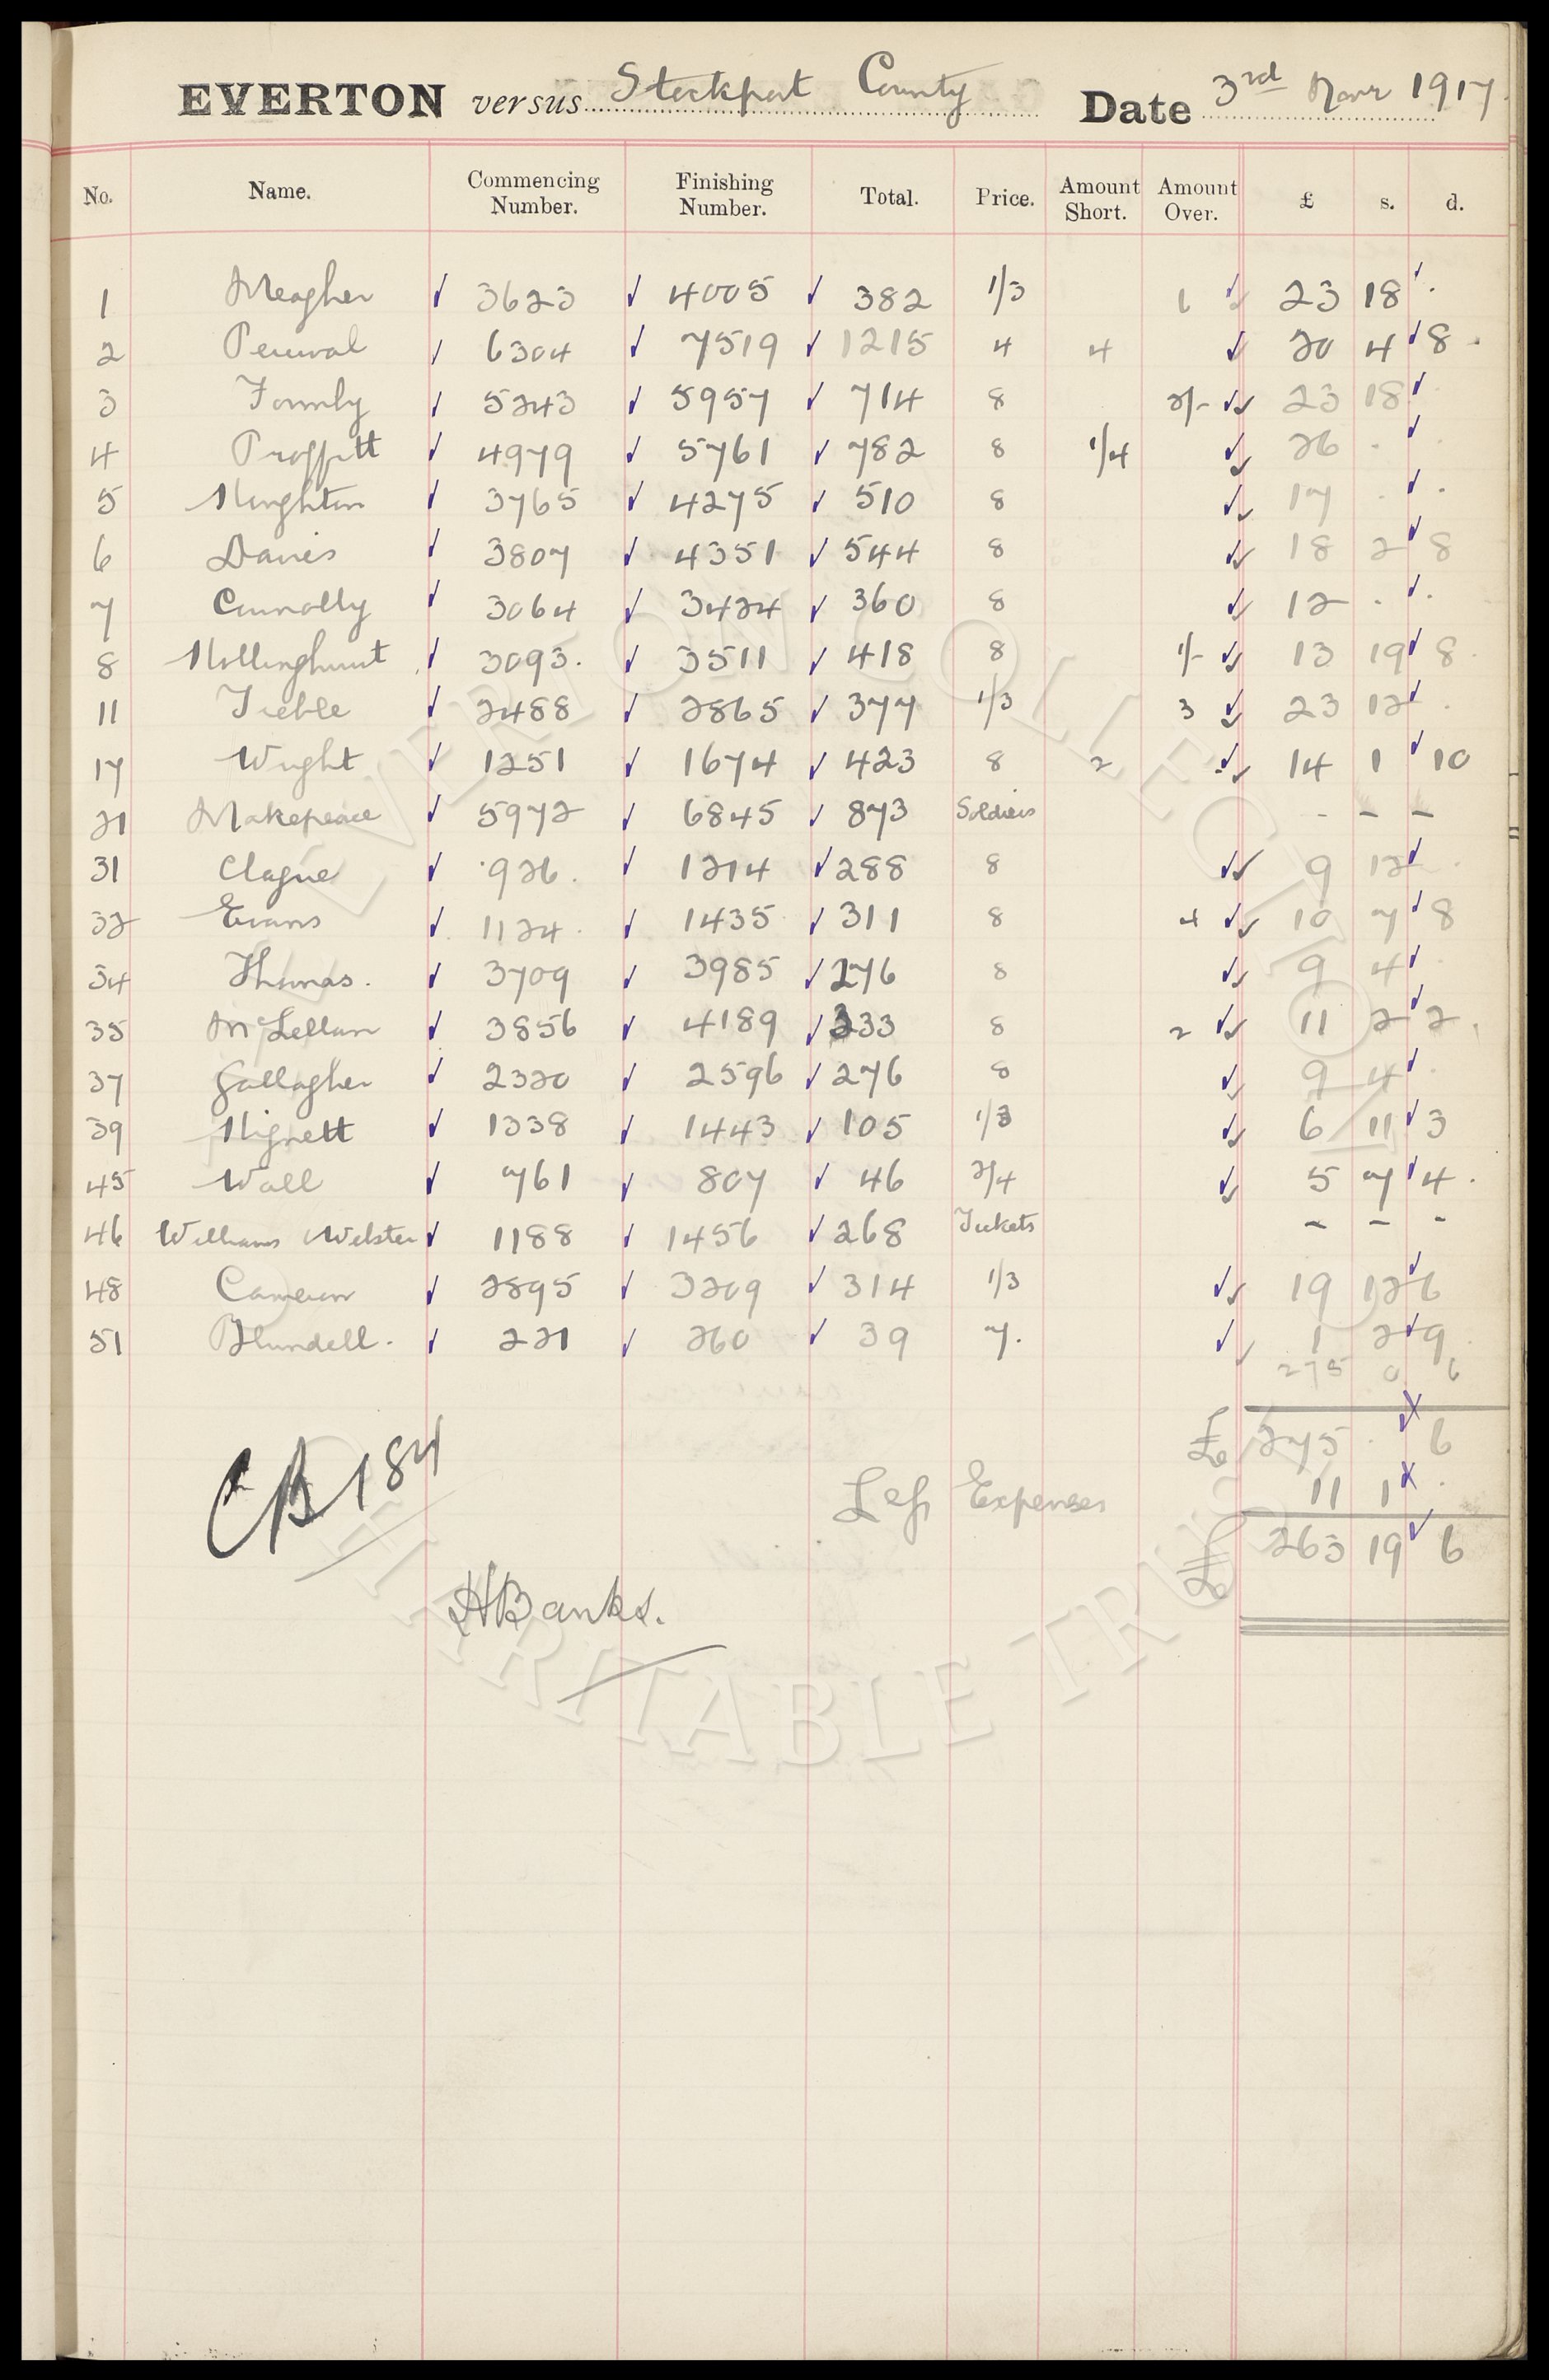 EVERTON versus Stockport County Date 3rd Novr 1917.
No. Name. Commencing Number. Finishing Number. Total. Price. Amount Short. Amount Over. £ s. d.
1 Meagher 3623 4005 382 1/3 6 23 18 .
2 Percival 6304 7519 1215 4 4 20 4 8 .
3 Formby 5243 5957 714 8 2/- 23 18 .
4 Proffitt 4979 5761 782 8 1/4 26 . .
5 Houghton 3765 4275 510 8 17 . .
6 Davies 3807 4351 544 8 18 2 8
7 Connolly 3064 3424 360 8 12 . .
8 Hollinghurst 3093. 3511 418 8 1/- 13 19 8 .
11 Treble 2488 2865 377 1/3 3 23 12 .
17 Wright 1251 1674 423 8 2 14 1 10
21 Makepeace 5972 6845 873 Soldiers - - -
31 Clague 926. 1214 288 8 9 12 .
32 Evans 1124. 1435 311 8 4 10 7 8
34 Thomas. 3709 3985 276 8 9 4 .
35 McLellan 3856 4189 333 8 2 11 2 2
37 Gallagher 2320 2596 276 8 9 4 .
39 Hignett 1338 1443 105 1/3 6 11 3
45 Wall 761 807 46 2/4 5 7 4 .
46 Williams Webster 1188 1456 268 Tickets - - -
48 Cameron 2895 3209 314 1/3 19 12 6
51 Blundell. 221 260 39 7. 1 2 9
275 0 6
£ 275 . 6
Less Expenses 11 1 .
£ 263 19 6
CB 184
HBanks.
EVERTON COLLECTION
CHARITABLE TRUST